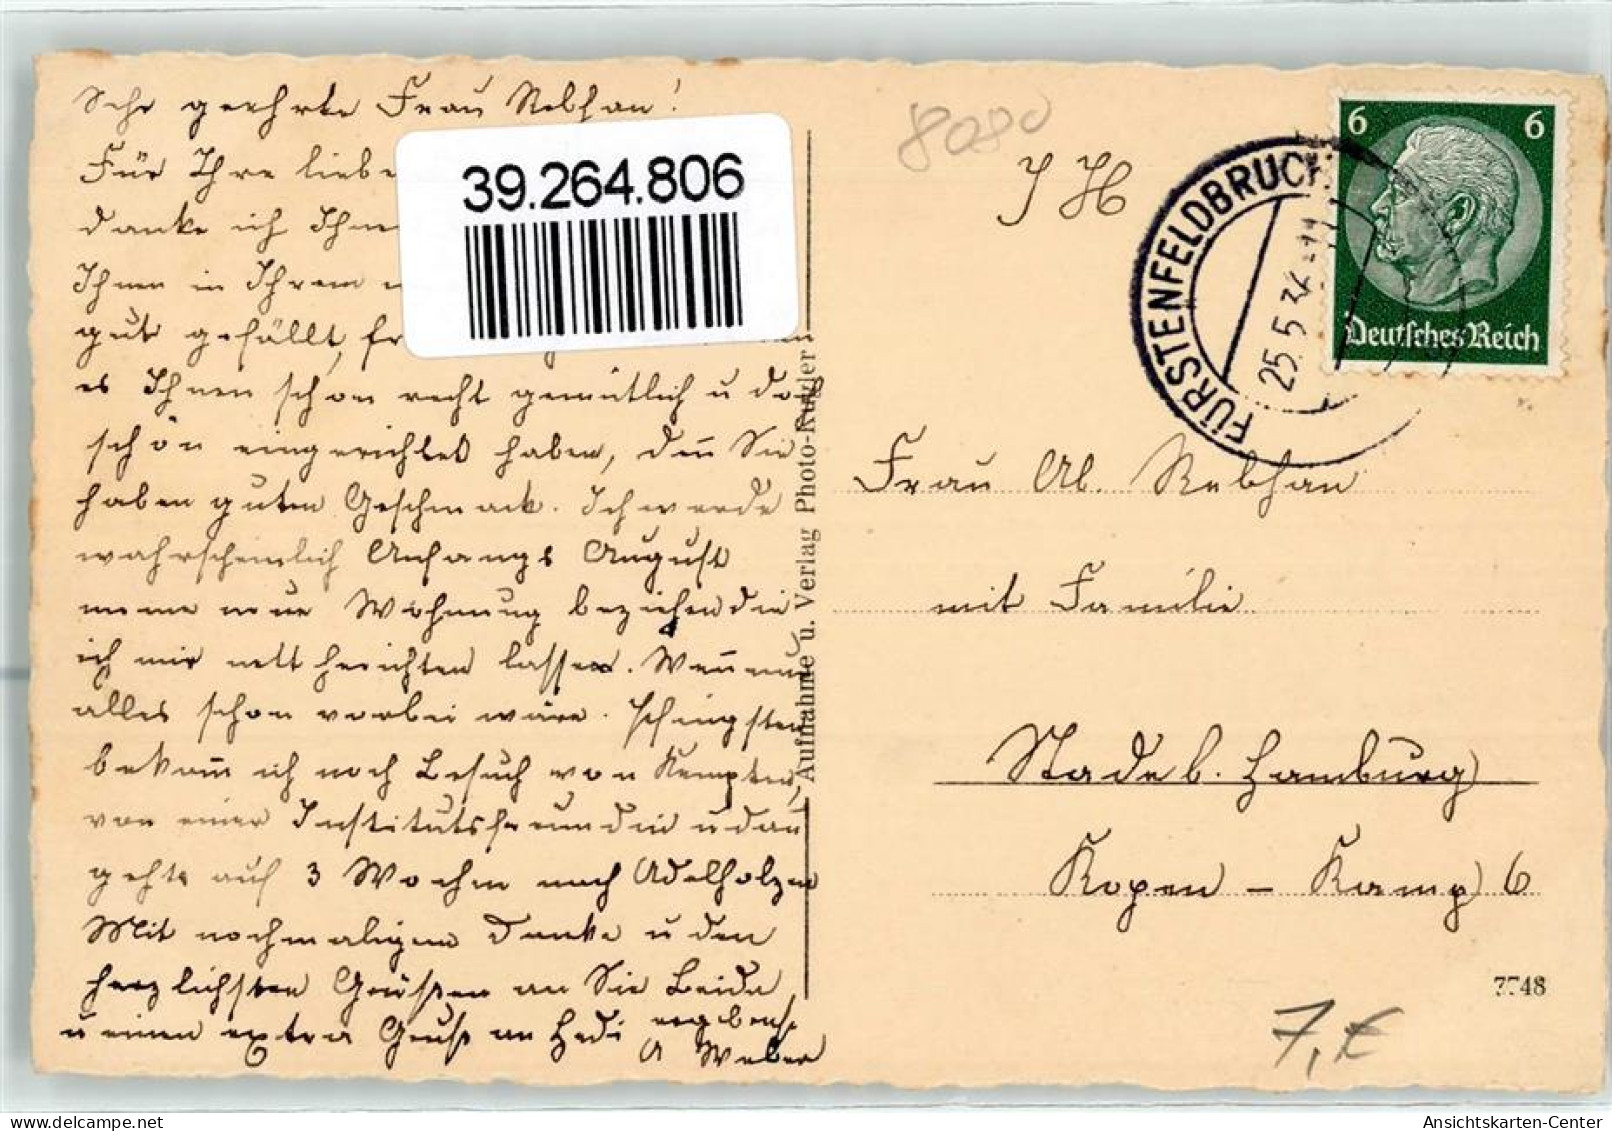 Sehr geehrte Frau Rebhan!
Für Ihre liebe
danke ich Ihne
Ihnen in Ihrem
gut gefällt, fr
es Ihnen schon recht gemütlich u
schön eingerichtet haben, den̅ Sie
haben guten Geschmack. Ich werde
wahrscheinlich Anfangs August
meine neue Wohnung beziehen die
ich mir nett herichten lassen. Wen̅
alles schon vorbei wäre. Pfingsten
bekom̅ ich noch Besuch von Kempten,
von einer Institutsfreundin u dan̅
gehts auf 3 Wochen nach Adelholzen
Mit nochmaligem Danke u den
herzlichsten Grüßen an Sie Beide
u einen extra Gruß an Hedi ergebenst
A Weber
39.264.806
Aufnahme u. Verlag Photo-Kugler
8080
J H
FÜRSTENFELDBRUCK
25.5.34
6 6
Deutsches Reich
Frau Ab. Rebhan
mit Familie
Stade b. Hamburg
Kopen - Kamp 6
7748
7,€
Ansichtskarten-Center